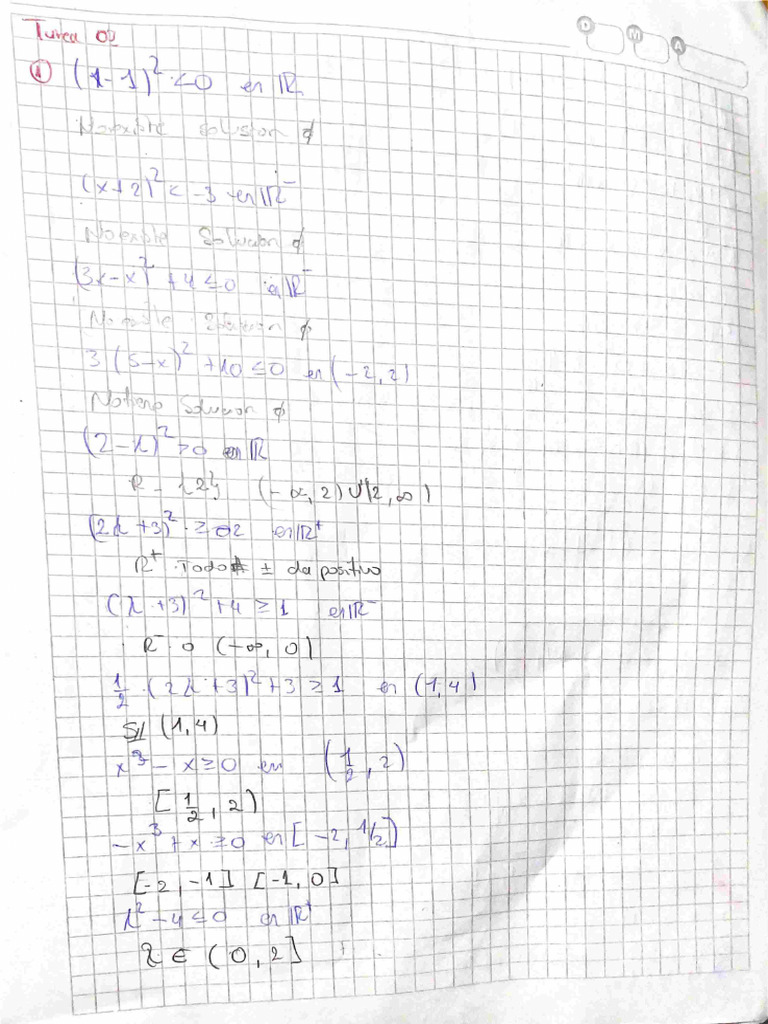 D M A
Tarea 02
① (x-1)² < 0 en ℝ
No existe solucion ∅
(x+2)² < -3 en ℝ⁻
No existe Solucion ∅
(3x-x)² + 4 ≤ 0 en ℝ⁻
No existe Solucion ∅
3(5-x)² + 10 ≤ 0 en (-2, 2)
No tiene Solucion ∅
(2-x)² > 0 en ℝ
R - {2} (-∞, 2) ∪ (2, ∞)
(2x+3)² ≥ 02 en ℝ⁺
R⁺ Todo ± da positivo
(x+3)² + 4 ≥ 1 en ℝ⁻
R⁻ o (-∞, 0)
1/2 · (2x+3)² + 3 ≥ 1 en (1, 4)
S// (1, 4)
x³ - x ≥ 0 en (1/2, 2)
[1/2, 2)
-x³ + x ≥ 0 en [-2, 1/2]
[-2, -1] [-1, 0]
x² - 4 ≤ 0 en ℝ⁺
x ∈ (0, 2]